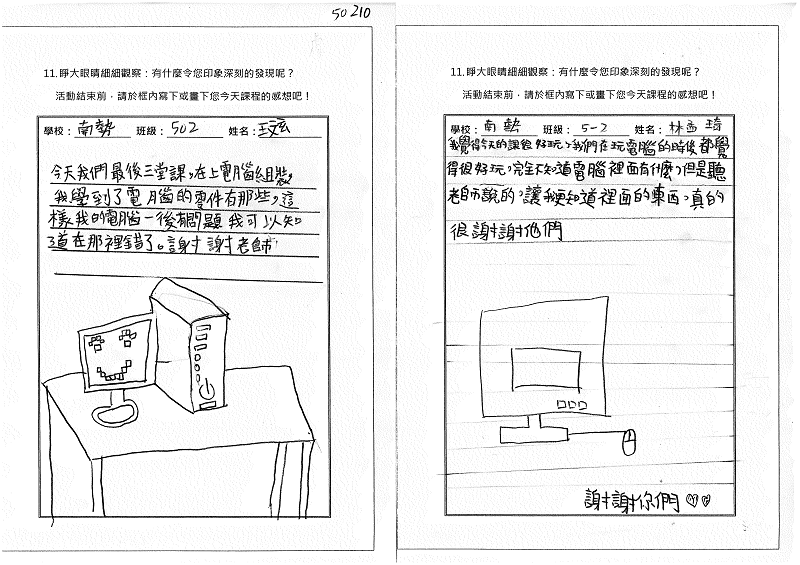 50210
11.睜大眼睛細細觀察：有什麼令您印象深刻的發現呢？
活動結束前，請於框內寫下或畫下您今天課程的感想吧！
學校：南勢 班級：502 姓名：
今天我們最後三堂課，在上電腦組裝，
我學到了電腦的零件有那些，這
樣我的電腦一後有問題我可以知
道在那裡錯了。謝謝老師
11.睜大眼睛細細觀察：有什麼令您印象深刻的發現呢？
活動結束前，請於框內寫下或畫下您今天課程的感想吧！
學校：南勢 班級：5-2 姓名：林孟琦
我覺得今天的課很好玩，我們在玩電腦的時後都覺
得很好玩，完全不知道電腦裡面有什麼，但是聽
老師說的，讓我更知道裡面的東西，真的
很謝謝他們
謝謝你們♡♡